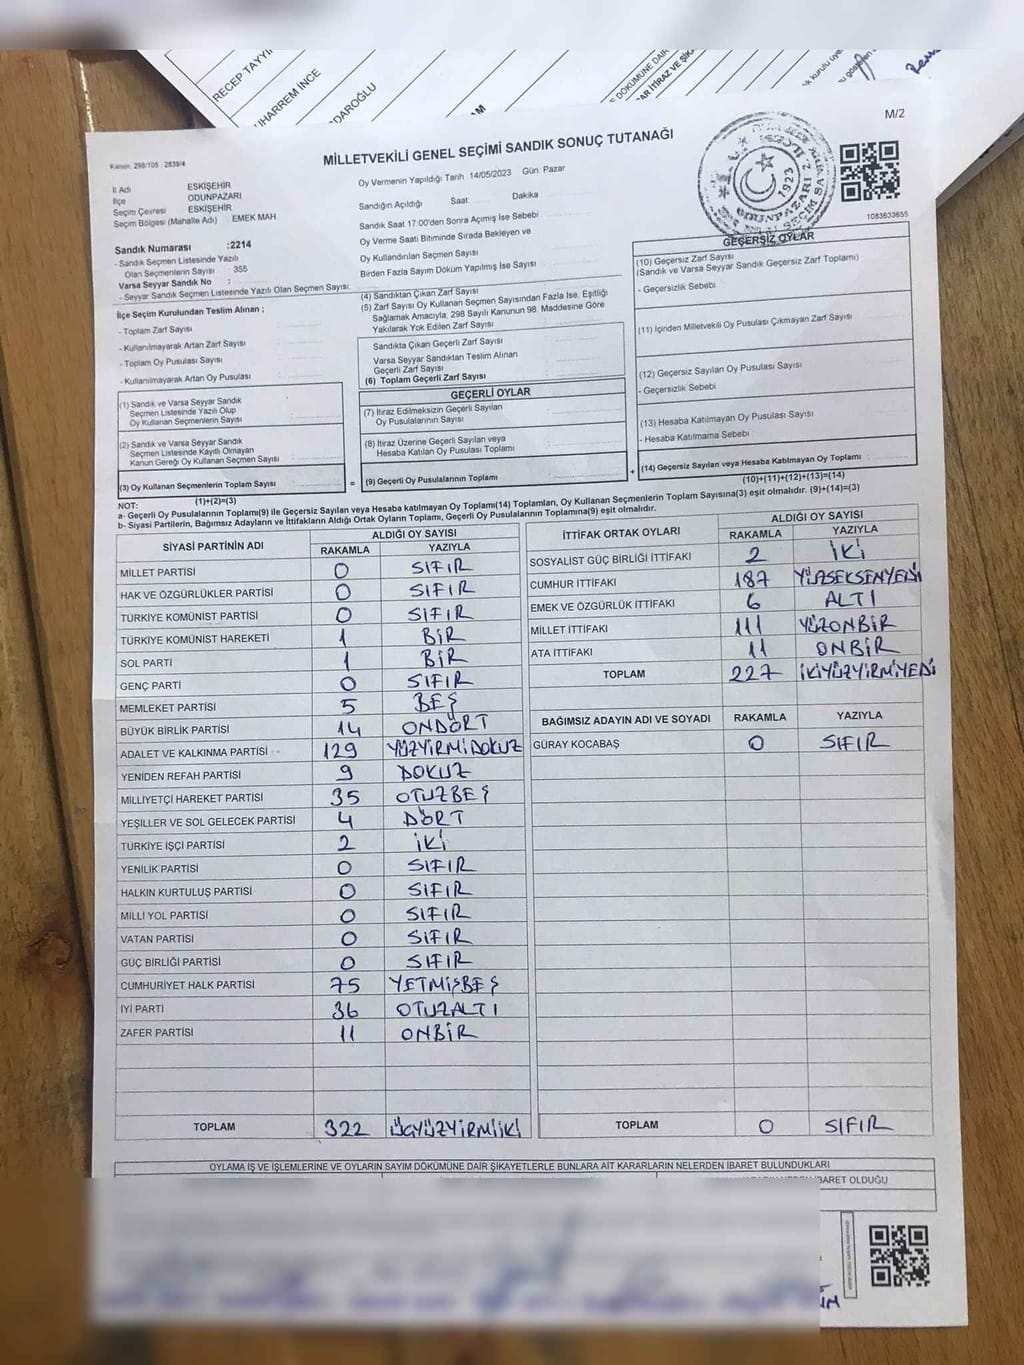 RECEP TAYYİ
UHARREM İNCE
DAROĞLU
AM
M/2
Kanun: 298/105 , 2839/4
MİLLETVEKİLİ GENEL SEÇİMİ SANDIK SONUÇ TUTANAĞI
1083833655
İl Adı ESKİŞEHİR
İlçe ODUNPAZARI
Seçim Çevresi ESKİŞEHİR
Seçim Bölgesi (Mahalle Adı) EMEK MAH
Sandık Numarası :2214
- Sandık Seçmen Listesinde Yazılı
Olan Seçmenlerin Sayısı : 355
Varsa Seyyar Sandık No :
- Seyyar Sandık Seçmen Listesinde Yazılı Olan Seçmen Sayısı:
Oy Vermenin Yapıldığı Tarih 14/05/2023 Gün: Pazar
Sandığın Açıldığı Saat Dakika
Sandık Saat 17:00'den Sonra Açmış İse Sebebi
Oy Verme Saati Bitiminde Sırada Bekleyen ve
Oy Kullandırılan Seçmen Sayısı
Birden Fazla Sayım Döküm Yapılmış İse Sayısı
İlçe Seçim Kurulundan Teslim Alınan ;
- Toplam Zarf Sayısı
- Kullanılmayarak Artan Zarf Sayısı
- Toplam Oy Pusulası Sayısı
- Kullanılmayarak Artan Oy Pusulası
(1) Sandık ve Varsa Seyyar Sandık
Seçmen Listesinde Yazılı Olup
Oy Kullanan Seçmenlerin Sayısı
(2) Sandık ve Varsa Seyyar Sandık
Seçmen Listesinde Kayıtlı Olmayan
Kanun Gereği Oy Kullanan Seçmen Sayısı
(3) Oy Kullanan Seçmenlerin Toplam Sayısı
(1)+(2)=(3)
(4) Sandıktan Çıkan Zarf Sayısı
(5) Zarf Sayısı Oy Kullanan Seçmen Sayısından Fazla İse, Eşitliği
Sağlamak Amacıyla, 298 Sayılı Kanunun 98. Maddesine Göre
Yakılarak Yok Edilen Zarf Sayısı
Sandıkta Çıkan Geçerli Zarf Sayısı
Varsa Seyyar Sandıktan Teslim Alınan
Geçerli Zarf Sayısı
(6) Toplam Geçerli Zarf Sayısı
GEÇERLİ OYLAR
(7) İtiraz Edilmeksizin Geçerli Sayılan
Oy Pusulalarının Sayısı
(8) İtiraz Üzerine Geçerli Sayılan veya
Hesaba Katılan Oy Pusulası Toplamı
=
(9) Geçerli Oy Pusulalarının Toplamı
+
GEÇERSİZ OYLAR
(10) Geçersiz Zarf Sayısı
(Sandık ve Varsa Seyyar Sandık Geçersiz Zarf Toplamı)
- Geçersizlik Sebebi
(11) İçinden Milletvekili Oy Pusulası Çıkmayan Zarf Sayısı
(12) Geçersiz Sayılan Oy Pusulası Sayısı
- Geçersizlik Sebebi
(13) Hesaba Katılmayan Oy Pusulası Sayısı
- Hesaba Katılmama Sebebi
(14) Geçersiz Sayılan veya Hesaba Katılmayan Oy Toplamı
(10)+(11)+(12)+(13)=(14)
NOT:
a- Geçerli Oy Pusulalarının Toplamı(9) ile Geçersiz Sayılan veya Hesaba katılmayan Oy Toplamı(14) Toplamları, Oy Kullanan Seçmenlerin Toplam Sayısına(3) eşit olmalıdır. (9)+(14)=(3)
b- Siyasi Partilerin, Bağımsız Adayların ve İttifakların Aldığı Ortak Oyların Toplamı, Geçerli Oy Pusulalarının Toplamına(9) eşit olmalıdır.
SİYASİ PARTİNİN ADI ALDIĞI OY SAYISI
RAKAMLA YAZIYLA
MİLLET PARTİSİ 0 SIFIR
HAK VE ÖZGÜRLÜKLER PARTİSİ 0 SIFIR
TÜRKİYE KOMÜNİST PARTİSİ 0 SIFIR
TÜRKİYE KOMÜNİST HAREKETİ 1 BİR
SOL PARTİ 1 BİR
GENÇ PARTİ 0 SIFIR
MEMLEKET PARTİSİ 5 BEŞ
BÜYÜK BİRLİK PARTİSİ 14 ONDÖRT
ADALET VE KALKINMA PARTİSİ 129 YÜZYİRMİDOKUZ
YENİDEN REFAH PARTİSİ 9 DOKUZ
MİLLİYETÇİ HAREKET PARTİSİ 35 OTUZBEŞ
YEŞİLLER VE SOL GELECEK PARTİSİ 4 DÖRT
TÜRKİYE İŞÇİ PARTİSİ 2 İKİ
YENİLİK PARTİSİ 0 SIFIR
HALKIN KURTULUŞ PARTİSİ 0 SIFIR
MİLLİ YOL PARTİSİ 0 SIFIR
VATAN PARTİSİ 0 SIFIR
GÜÇ BİRLİĞİ PARTİSİ 0 SIFIR
CUMHURİYET HALK PARTİSİ 75 YETMİŞBEŞ
İYİ PARTİ 36 OTUZALTI
ZAFER PARTİSİ 11 ONBİR
TOPLAM 322 ÜÇYÜZYİRMİİKİ
İTTİFAK ORTAK OYLARI ALDIĞI OY SAYISI
RAKAMLA YAZIYLA
SOSYALİST GÜÇ BİRLİĞİ İTTİFAKI 2 İKİ
CUMHUR İTTİFAKI 187 YÜZSEKSENYEDİ
EMEK VE ÖZGÜRLÜK İTTİFAKI 6 ALTI
MİLLET İTTİFAKI 111 YÜZONBİR
ATA İTTİFAKI 11 ONBİR
TOPLAM 227 İKİYÜZYİRMİYEDİ
BAĞIMSIZ ADAYIN ADI VE SOYADI RAKAMLA YAZIYLA
GÜRAY KOCABAŞ 0 SIFIR
TOPLAM 0 SIFIR
OYLAMA İŞ VE İŞLEMLERİNE VE OYLARIN SAYIM DÖKÜMÜNE DAİR ŞİKAYETLERLE BUNLARA AİT KARARLARIN NELERDEN İBARET BULUNDUKLARI
İBARET OLDUĞU